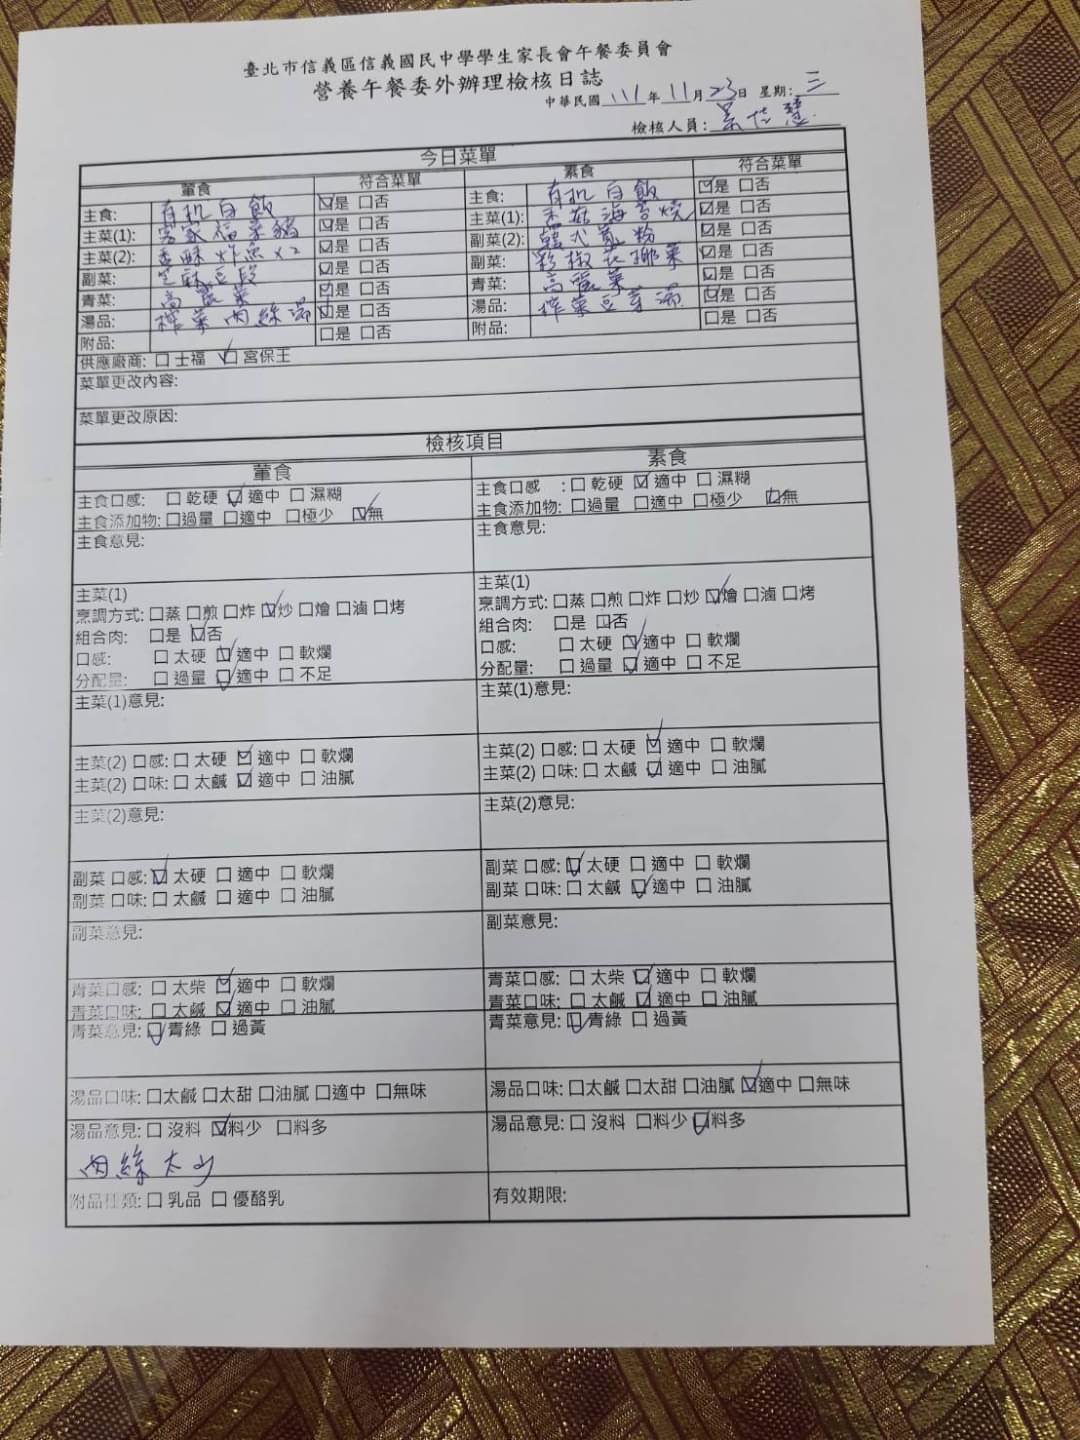 臺北市信義區信義國民中學學生家長會午餐委員會
營養午餐委外辦理檢核日誌
中華民國 111 年 11 月 23 日 星期: 三
檢核人員:
今日菜單
葷食 符合菜單 素食 符合菜單
主食: 有机白飯 ☑是 □否 主食: 有机白飯 ☑是 □否
主菜(1): 客家福菜豬 ☑是 □否 主菜(1): 海茸燒 ☑是 □否
主菜(2): 香酥炸魚x2 ☑是 □否 副菜(2): 韓式粉 ☑是 □否
副菜: 芝麻豆段 ☑是 □否 副菜: 彩椒花椰菜 ☑是 □否
青菜: 高麗菜 ☑是 □否 青菜: 高麗菜 ☑是 □否
湯品: 榨菜肉絲湯 ☑是 □否 湯品: 榨菜豆芽湯 ☑是 □否
附品: □是 □否 附品: □是 □否
供應廠商: □ 士福 ☑ 宮保王
菜單更改內容:
菜單更改原因:
檢核項目
葷食 素食
主食口感: □ 乾硬 ☑ 適中 □ 濕糊 主食口感 : □ 乾硬 ☑ 適中 □ 濕糊
主食添加物: □過量 □適中 □極少 ☑無 主食添加物: □過量 □適中 □極少 ☑無
主食意見: 主食意見:
主菜(1) 主菜(1)
烹調方式: □蒸 □煎 □炸 ☑炒 □燴 □滷 □烤 烹調方式: □蒸 □煎 □炸 □炒 ☑燴 □滷 □烤
組合肉: □是 ☑否 組合肉: □是 ☑否
口感: □ 太硬 ☑ 適中 □ 軟爛 口感: □ 太硬 ☑ 適中 □ 軟爛
分配量: □ 過量 ☑ 適中 □ 不足 分配量: □ 過量 ☑ 適中 □ 不足
主菜(1)意見: 主菜(1)意見:
主菜(2) 口感: □ 太硬 ☑ 適中 □ 軟爛 主菜(2) 口感: □ 太硬 ☑ 適中 □ 軟爛
主菜(2) 口味: □ 太鹹 ☑ 適中 □ 油膩 主菜(2) 口味: □ 太鹹 ☑ 適中 □ 油膩
主菜(2)意見: 主菜(2)意見:
副菜 口感: ☑ 太硬 □ 適中 □ 軟爛 副菜 口感: ☑ 太硬 □ 適中 □ 軟爛
副菜 口味: □ 太鹹 □ 適中 □ 油膩 副菜 口味: □ 太鹹 ☑ 適中 □ 油膩
副菜意見: 副菜意見:
青菜口感: □ 太柴 ☑ 適中 □ 軟爛 青菜口感: □ 太柴 ☑ 適中 □ 軟爛
青菜口味: □ 太鹹 ☑ 適中 □ 油膩 青菜口味: □ 太鹹 ☑ 適中 □ 油膩
青菜意見: ☑ 青綠 □ 過黃 青菜意見: ☑ 青綠 □ 過黃
湯品口味: □太鹹 □太甜 □油膩 □適中 □無味 湯品口味: □太鹹 □太甜 □油膩 ☑適中 □無味
湯品意見: □ 沒料 ☑料少 □料多 湯品意見: □ 沒料 □料少 ☑料多
肉絲太少
附品種類: □ 乳品 □ 優酪乳 有效期限: